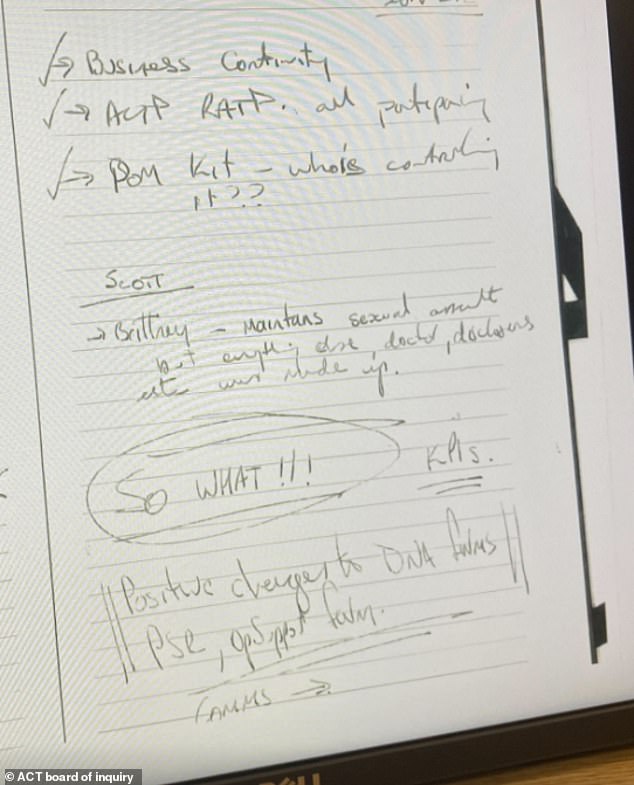 → Business Continuity
→ ACTP RATP. all participating
→ Rom Kit - who's controlling
it??
SCOTT
→ Brittney - Maintans sexual assault
but anything else, doctor, doctors
etc was made up.
SO WHAT!!!
KPIs.
Positive changes to DNA forms
PSE, form.
→
© ACT board of inquiry